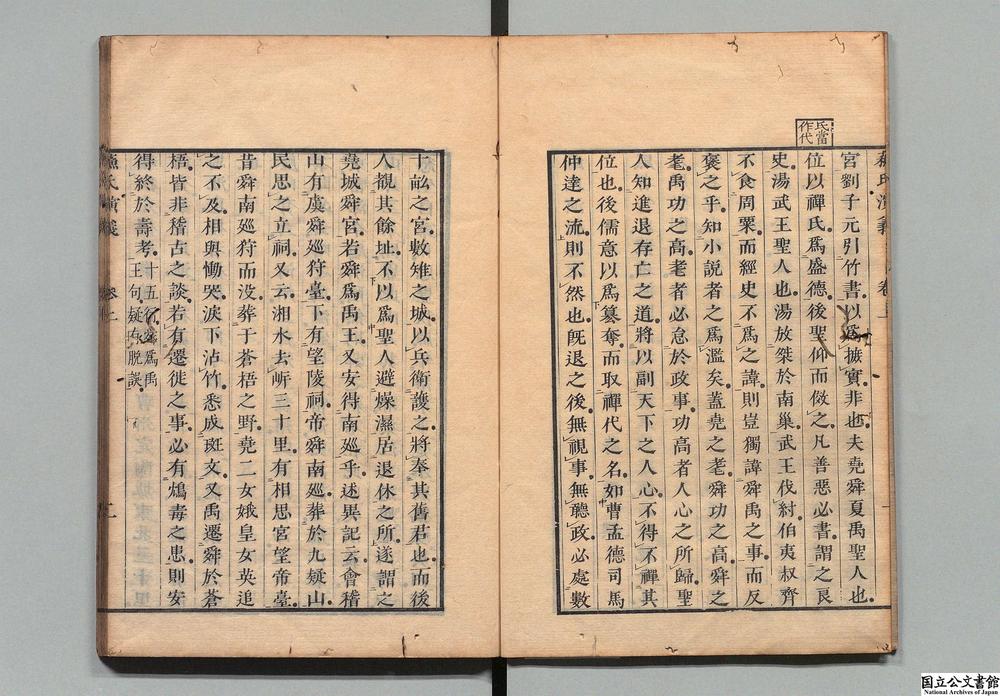 氏當
作代
蘇氏演義 卷上
宮劉子元引竹書以爲摭實非也夫堯舜夏禹聖人也
位以禪氏爲盛德後聖仰而倣之凡善惡必書謂之良
史湯武王聖人也湯放桀於南巢武王伐紂伯夷叔齊
不食周粟而經史不爲之諱則豈獨諱舜禹之事而反
褒之乎知小説者之爲濫矣蓋堯之老舜功之高舜之
老禹功之高老者必怠於政事功高者人心之所歸聖
人知進退存亡之道將以副天下之人心不得不禪其
位也後儒意以爲簒奪而取禪代之名如曹孟德司馬
仲達之流則不然也旣退之後無視事無聽政必處數
十畝之宮數雉之城以兵衛護之將奉其舊君也而後
人觀其餘址不以爲聖人避燥濕居退休之所遂謂之
堯城舜宮若舜爲禹王又安得南廵乎述異記云會稽
山有虞舜廵狩臺下有望陵祠帝舜南廵葬於九疑山
民思之立祠又云湘水去岍三十里有相思宮望帝臺
昔舜南廵狩而没葬于蒼梧之野堯二女娥皇女英追
之不及相與慟哭淚下沾竹悉成斑文又禹遷舜於蒼
梧皆非稽古之談若有遷徙之事必有鴆毒之患則安
得終於壽考
十五行舜爲禹
王句疑有脱誤
蘇氏演義 卷上
国立公文書館
National Archives of Japan